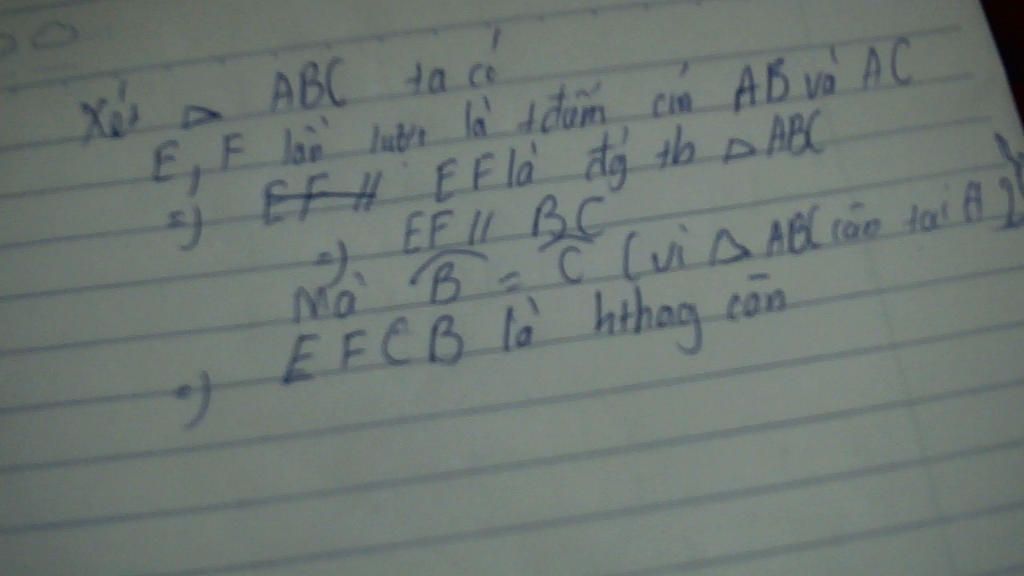 Xét △ ABC ta có
E, F lần lượt là tđiểm của AB và AC
=) EF // EF là đg tb △ ABC
=) EF // BC
Mà B̂ = Ĉ (vì △ ABC cân tại A)
=) EFCB là hthag cân